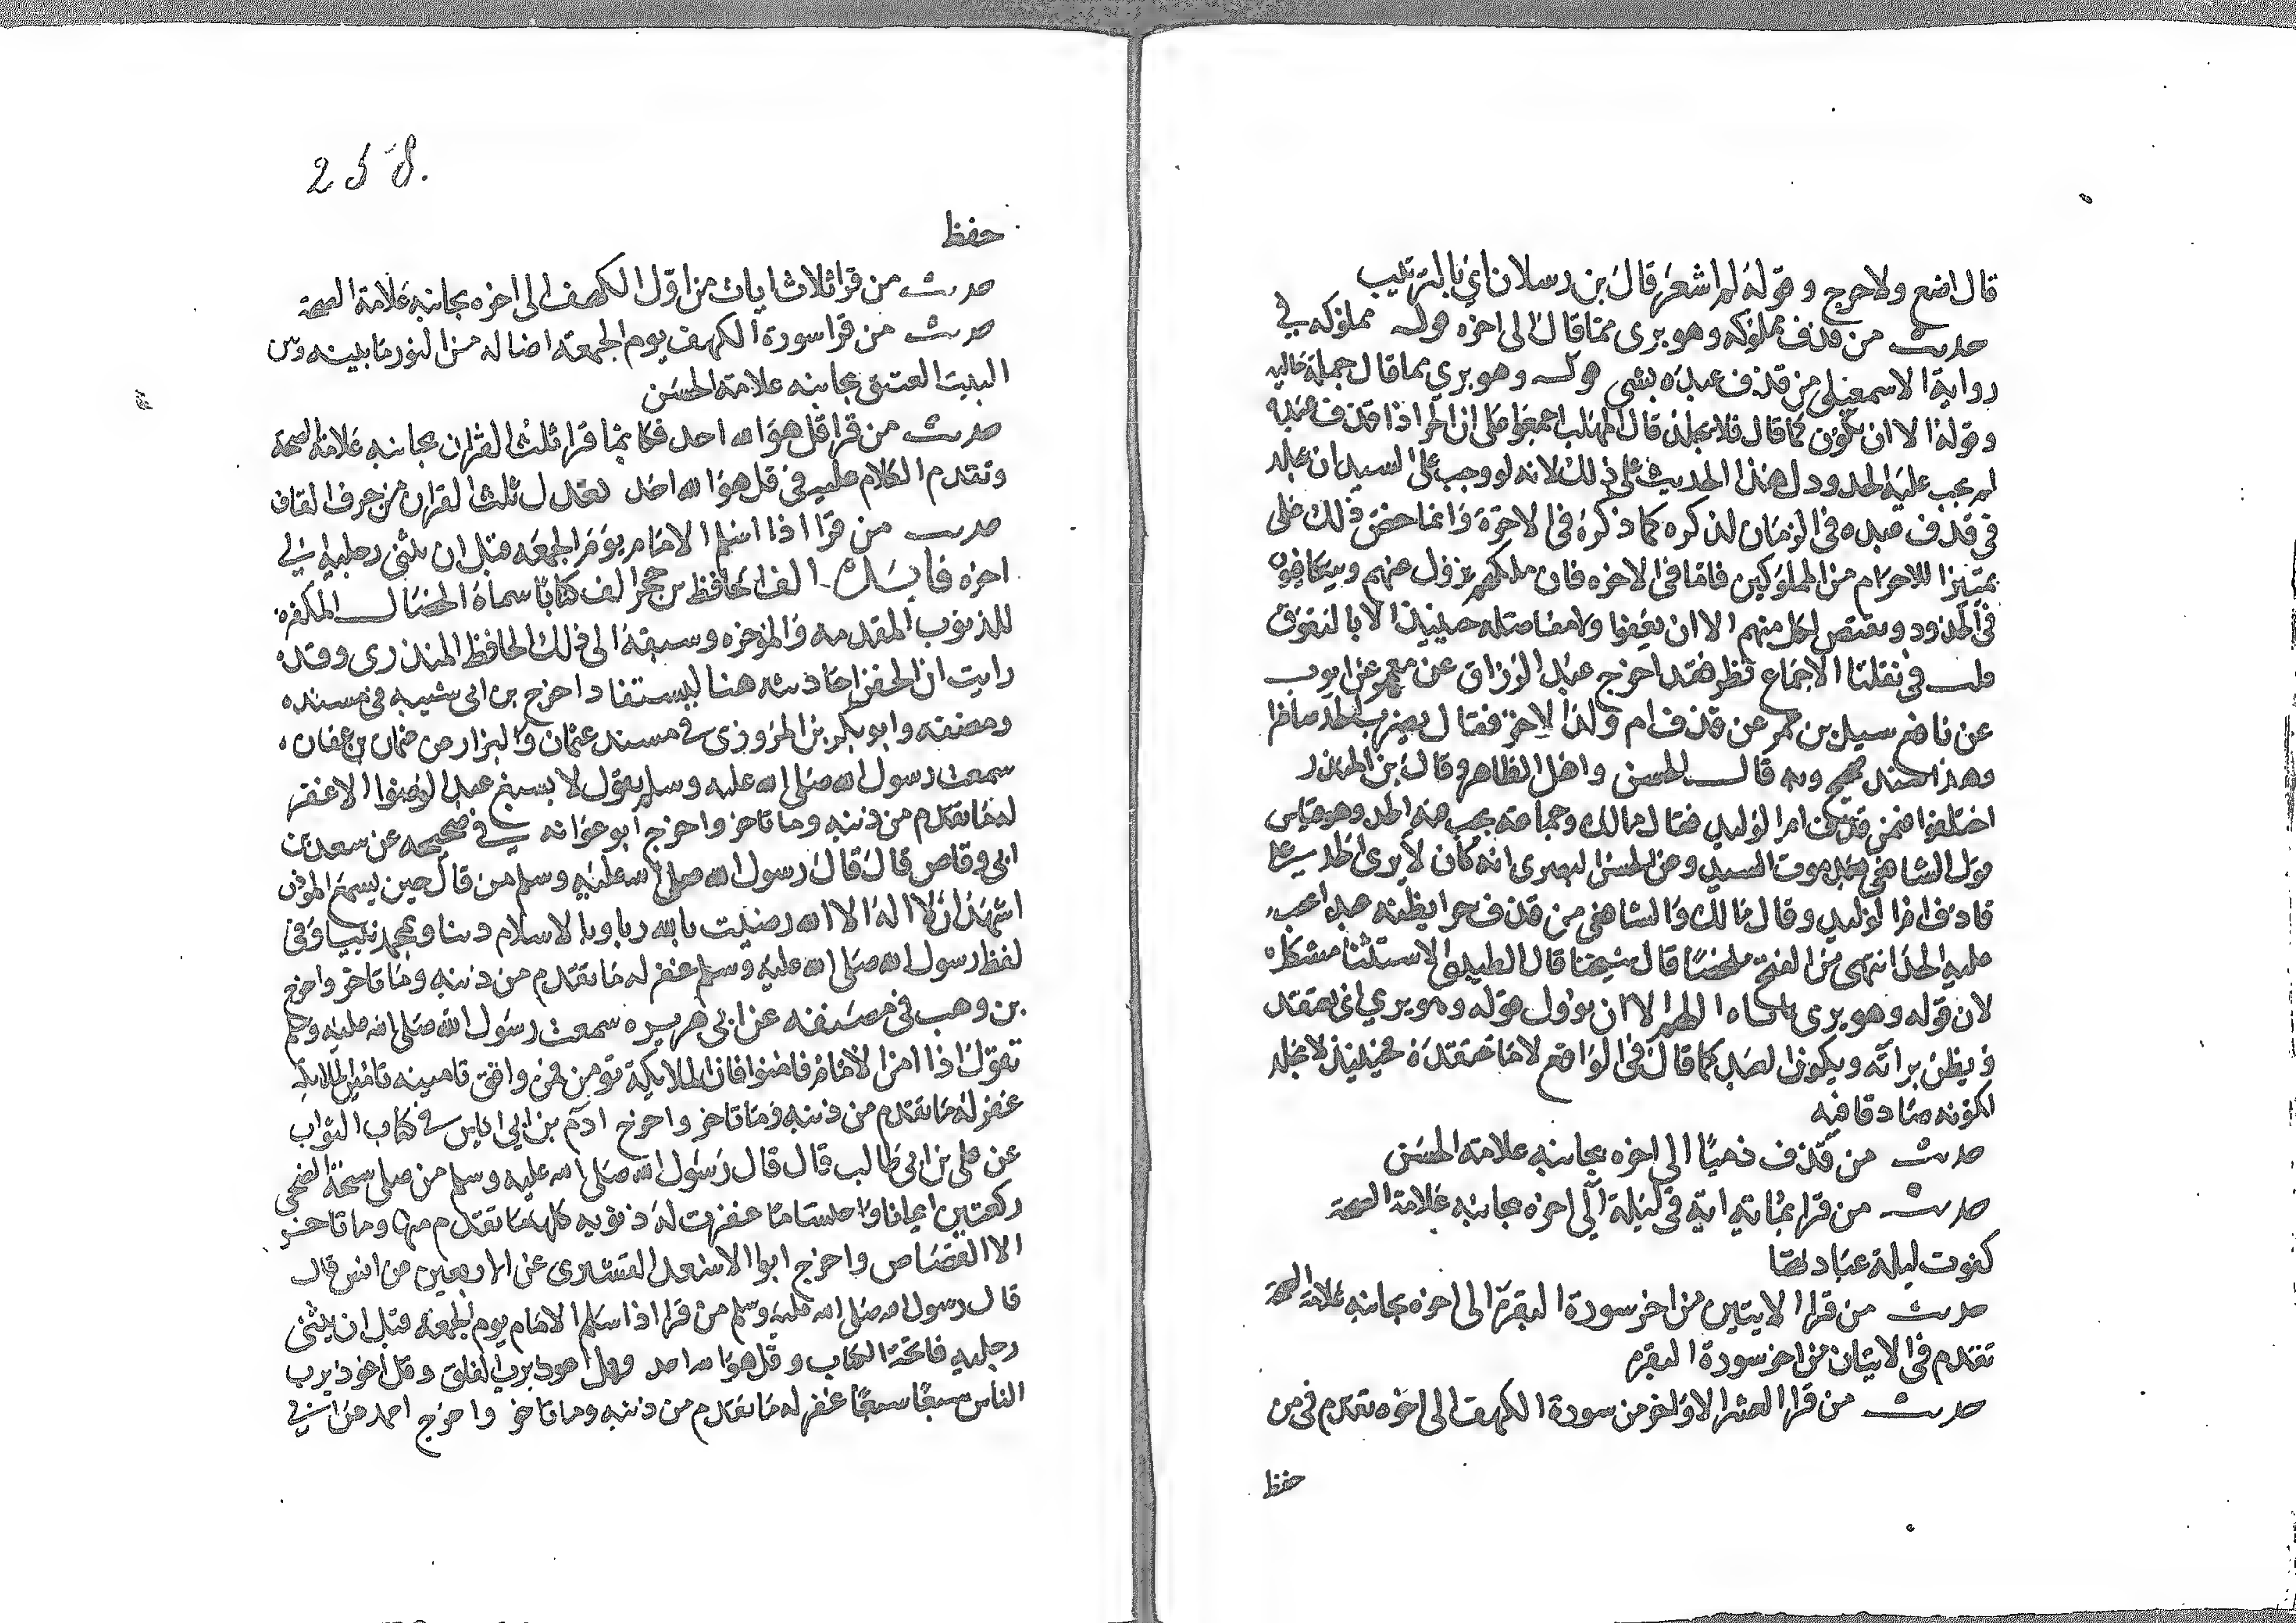 قال اضع ولا حرج وقوله لم اشعر قال بن رسلان اي بالترتيب
حديث من قذف مملوكه وهو برى مما قال الى اخره قوله مملوكه في
رواية الاسمعيلى من قذف عبده بشى قوله وهو بري مما قال جملة حاليه
وقوله الا ان يكون كما قال فلا يجلد قال المهلب اجمعوا على ان الحر اذا قذف عبده
لم يجب عليه الحد ودل هذا الحديث على ذلك لانه لو وجب على السيد ان يجلد
في قذف عبده فى الزمان لذكره كما ذكره فى الاخرة وانما خص ذلك على
تمييزا للاحرام من المملوكين فاما فى الاخره فان ملكهم يزول عنهم ويتكافون
في الحدود ويقتص لكل منهم الا ان يعفوا ولا مفاضله حينيذ الا بالتقوى
قلت في نقلنا الاجماع نظر فقد اخرج عبد الرزاق عن معمر عن ايوب
عن نافع سيل بن عمر عن قذف ام ولد لاخر فقال يضرب الحد صاغرا
وهذا سند صحيح وبه قال الحسن واهل الظاهر وقال بن المنذر
اختلفوا فيمن قذف ام الولد فقال مالك وجماعة يجب فيه الحد وهو قياس
قول الشافعي بعد موت السيد وعن الحسن البصرى انه كان لا يرى الحد على
قاذف ام الولد وقال مالك والشافعي من قذف حرا يظنه عبدا يجب
عليه الحد انتهى من الفتح ملخصا قال شيخنا قال الطيبى الاستثنا مشكل
لان قوله وهو برى ياباه اللهم الا ان يوول قوله وهو بري اي يعتقد
ويظن براته ويكون العبد كما قال في الواقع لا ما يعتقده فحينيذ لا يجلد
لكونه صادقا فيه
حديث من قذف ذميا الى اخره بجانبه علامة الحسن
حديث من قرا بمائة اية في ليلة الى اخره بجانبه علامة الصحة
كقوت ليلة عبادتها
حديث من قرا الايتين من اخر سورة البقرة الى اخره بجانبه علامة الصحة
تقدم في الايتان من اخر سورة البقره
حديث من قرا العشر الاواخر من سورة الكهف الى اخره تقدم في من
حفظ
258.
حفظ
حديث من قرا ثلاث ايات من اول الكهف الى اخره بجانبه علامة الصحة
حديث من قرا سورة الكهف يوم الجمعة اضا له من النور ما بينه وبين
البيت العتيق بجانبه علامة الحسن
حديث من قرا قل هو الله احد فكانما قرا ثلث القران بجانبه علامة الصحة
وتقدم الكلام عليه في قل هو الله احد تعدل ثلث القران من حرف القاف
حديث من قرا اذا سلم الامام يوم الجمعه قبل ان يثنى رجليه الى
اخره فايدة الف الحافظ بن حجر الف كتابا سماه الخصال المكفرة
للذنوب المقدمه والمؤخره وسبقه الى ذلك الحافظ المنذرى وقد
رايت ان الخص احاديثه هنا ليستفاد اخرج بن ابى شيبه في مسنده
ومصنفه وابو بكر بن المروزى في مسند عثمان والبزار عن عثمان بن عفان
سمعت رسول الله صلى الله عليه وسلم يقول لا يسبغ عبد الوضوا الا غفر
له ما تقدم من ذنبه وما تاخر واخرج ابو عوانه في صحيحه عن سعد بن
ابى وقاص قال قال رسول الله صلى الله عليه وسلم من قال حين يسمع المؤذن
اشهد ان لا اله الا الله رضيت بالله ربا وبالاسلام دينا وبمحمد نبيا وفي
لفظ رسول الله صلى الله عليه وسلم غفر له ما تقدم من ذنبه وما تاخر واخرج
بن وهب في مصنفه عن ابى هريره سمعت رسول الله صلى الله عليه وسلم
يقول اذا امن الامام فامنوا فان الملايكة تؤمن فمن وافق تامينه تامين الملايكة
غفر له ما تقدم من ذنبه وما تاخر واخرج ادم بن ابي اياس في كتاب الثواب
عن على بن ابى طالب قال قال رسول الله صلى الله عليه وسلم من صلى سبحة الضحى
ركعتين ايمانا واحتسابا غفرت له ذنوبه كلها ما تقدم منها وما تاخر
الا القصاص واخرج ابوا الاسعد القشيرى عن الاربعين عن انس قال
قال رسول الله صلى الله عليه وسلم من قرا اذا سلم الامام يوم الجمعة قبل ان يثنى
رجليه فاتحة الكتاب وقل هو الله احد وقل اعوذ برب الفلق وقل اعوذ برب
الناس سبعا سبعا غفر له ما تقدم من ذنبه وما تاخر واخرج احمد عن ابي